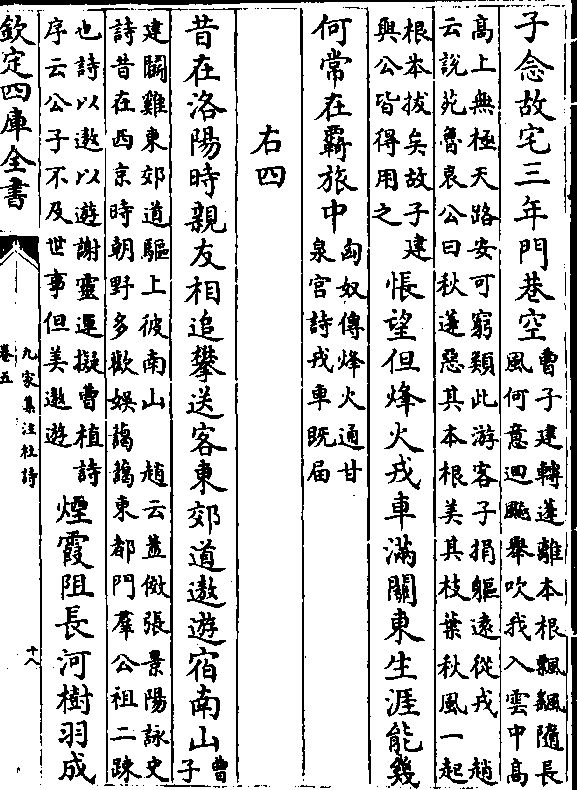 子念故宅三年門巷空
曹子建轉蓬離本根飄颻隨長
風何意迴飈舉吹我入雲中高
高上無極天路安可窮類此游客子捐軀遠從戎 趙
云說苑魯哀公曰秋蓬惡其本根美其枝葉秋風一起
根本拔矣故子建
與公皆得用之
悵望但烽火戎車滿關東生涯能幾
何常在羇旅中
匈奴傳烽火通甘
泉宮詩戎車既届
右四
昔在洛陽時親友相追攀送客東郊道遨遊宿南山
曹
子
建鬬雞東郊道驅上彼南山 趙云蓋倣張景陽詠史
詩昔在西京時朝野多歡娛藹藹東都門羣公祖二疎
也詩以遨以遊謝靈運擬曹植詩
序云公子不及世事但美遨遊
煙霞阻長河樹羽成
欽定四庫全書
九家集注杜詩
卷五
十八